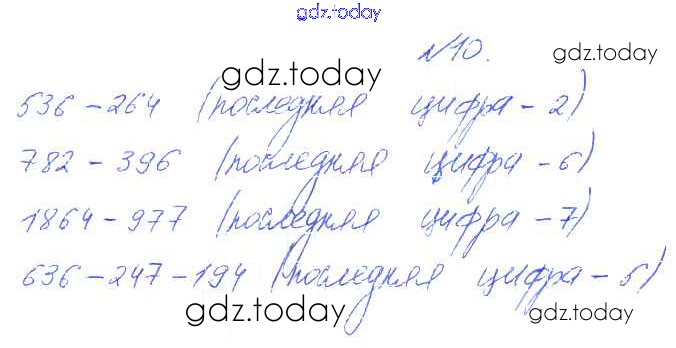 gdz.today
№10. gdz.today
gdz.today
536 - 264 (последняя цифра - 2)
782 - 396 (последняя цифра - 6)
1864 - 977 (последняя цифра - 7)
636 - 247 - 194 (последняя цифра - 5)
gdz.today gdz.today